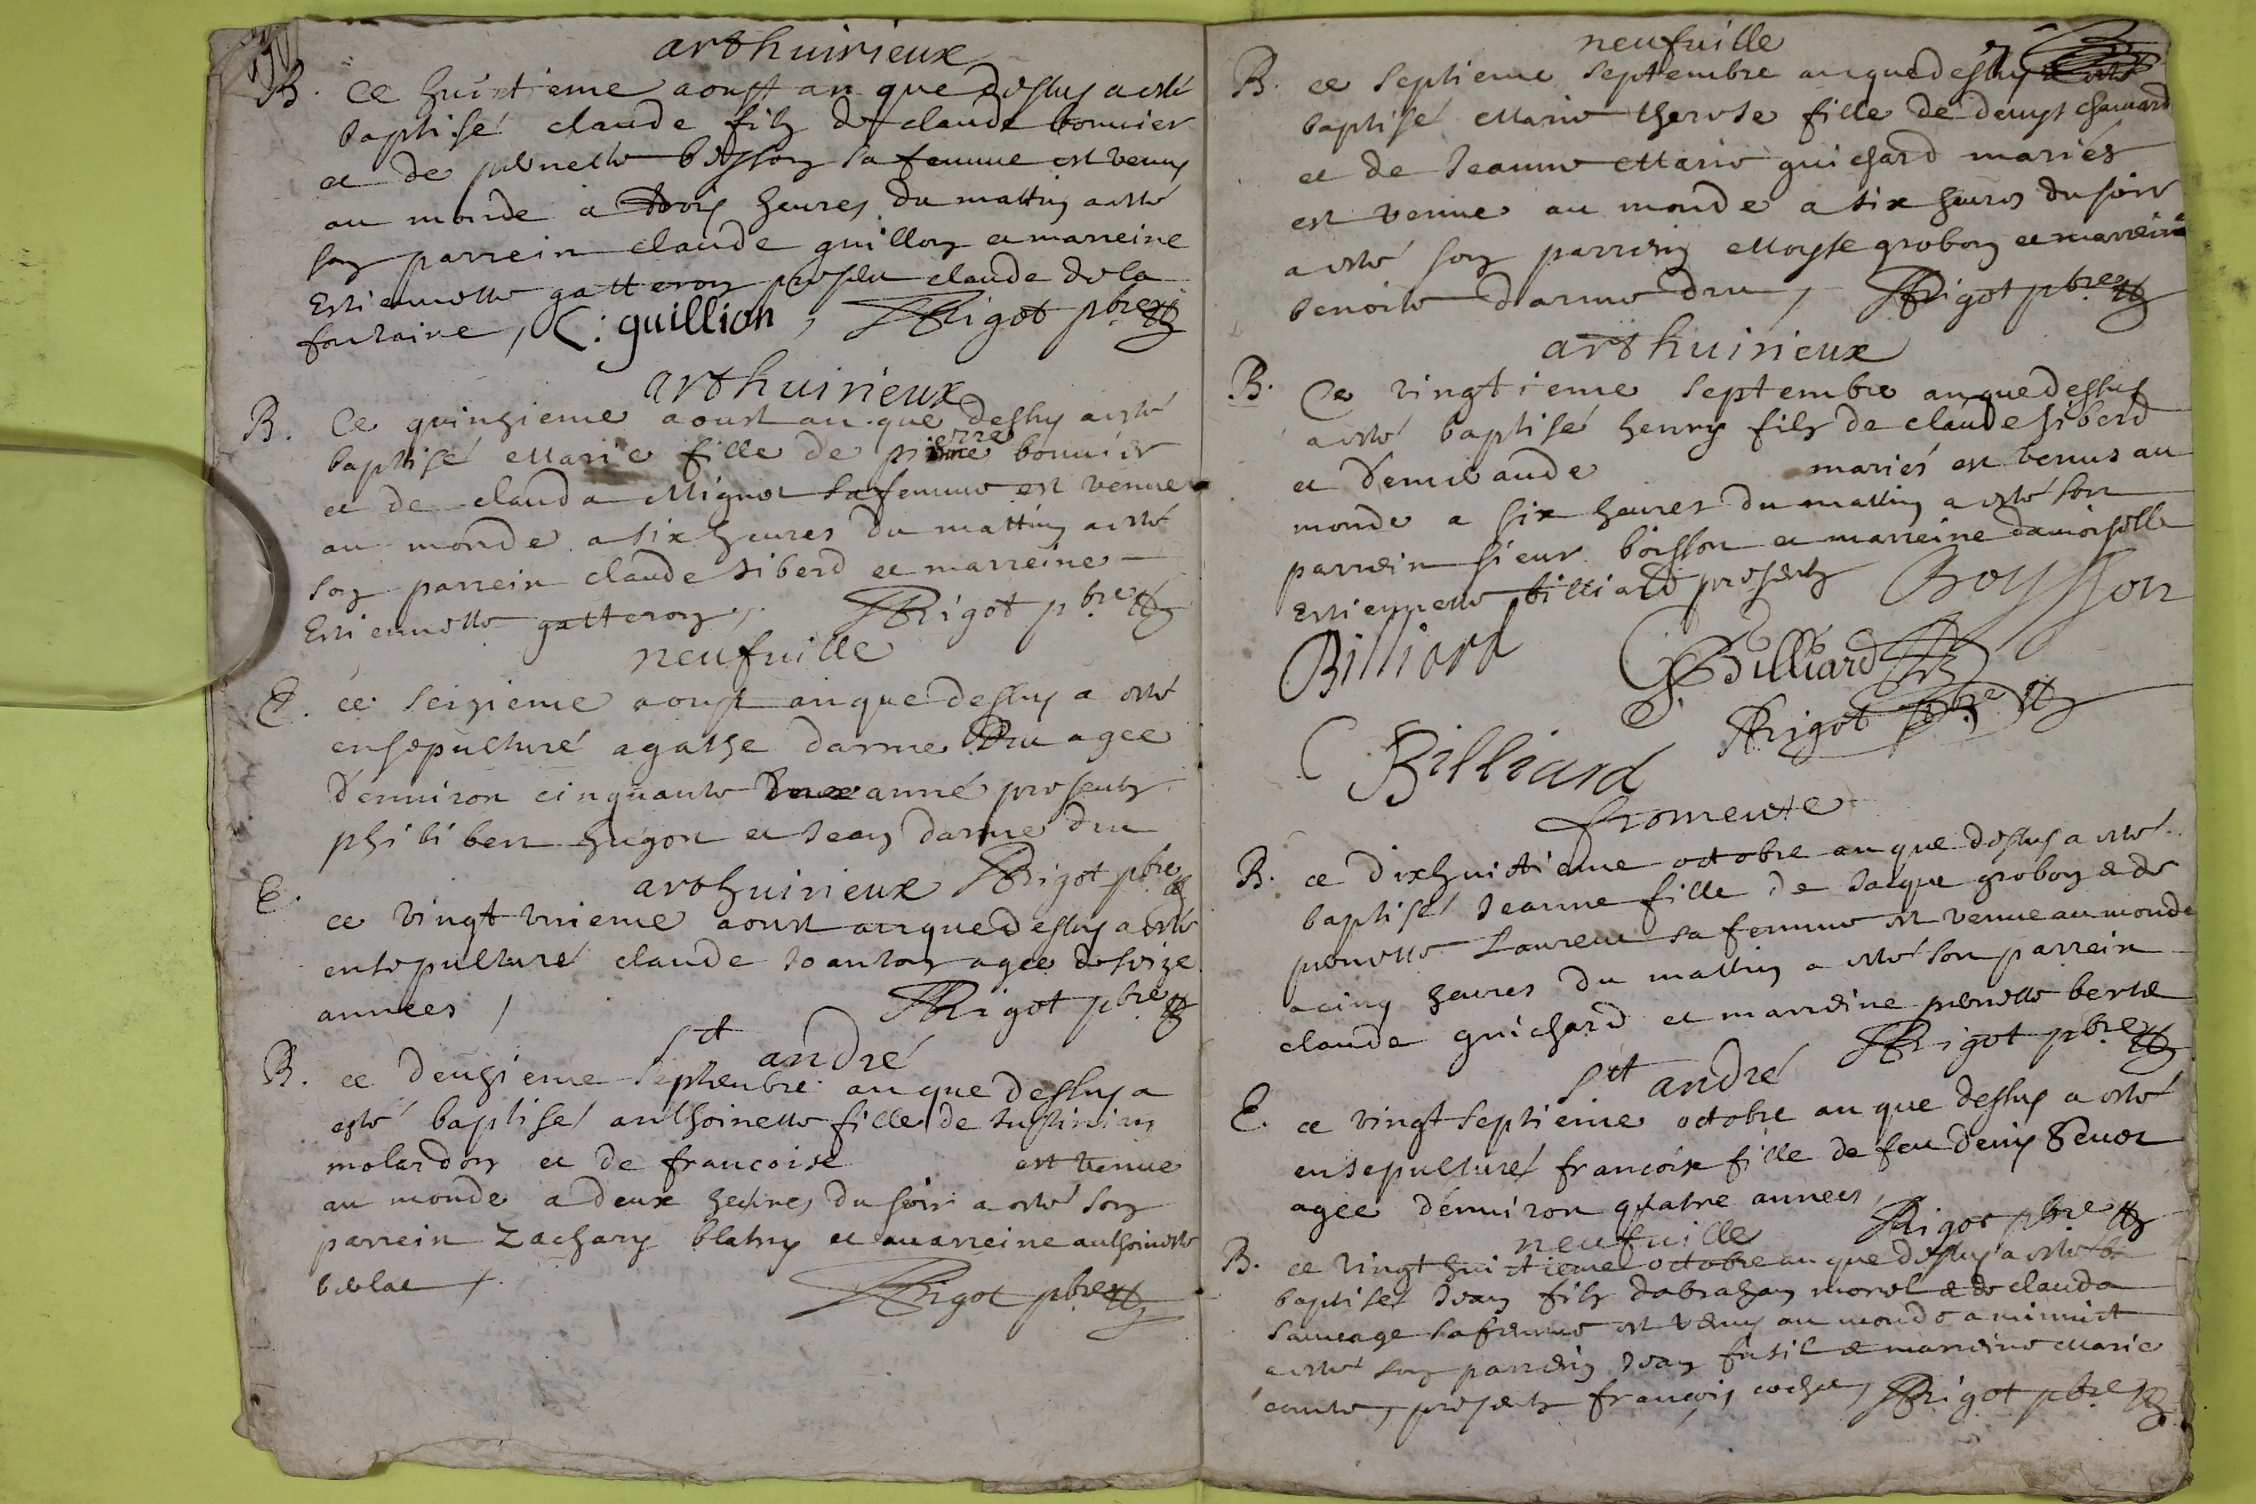 arthuirieux
B. Ce huictieme aoust an que dessus a esté
baptisé claude filz de claude bonnier
et de pernette bessoy sa femme est venu
au monde a trois heures du mattin a esté
son parrein claude guillon et marreine
Estiennette gatteron present claude de la
fontaine, C: guillion, Rigot pbre
arthuirieux
B. Ce quinzieme aoust an que dessus a esté
baptisé Marie fille de pierre bonnier
et de clauda Mignot sa femme est venue
au monde a six heures du matting a esté
son parrein claude siberd et marreine
Estiennette gatteron, Rigot pbre
neufuille
E. ce seizieme aoust an que dessus a esté
ensepulturé agathe darme dru agee
d'enuiron cinquante anné presents
philibert hugon et Jean darme dru
Rigot pbre
arthuirieux
E. ce vingt vnieme aoust an que dessus a esté
ensepulturé claude Joanton agee de seize
annees / Rigot pbre
St andré
B. ce deuzieme septembre an que dessus a
esté baptisé anthoinette fille de
molardon et de francoise est venue
au monde a deux heures du soir a esté son
parrein Zachary blatry et marreine anthoinette
Rigot pbre
neufuille
7
B. ce septieme septembre an que dessus a esté
baptisé Marie therese fille de denys chanard
et de Jeanne Marie guichard mariés
est venue au monde a six heures du soir
a esté son parrein Moyse grobon et marreine
benoite darme dru, Rigot pbre
arthuirieux
B. Ce vingtieme septembre an que dessus
a esté baptisé henry filz de claude siberd
et demeraude mariés est venus au
monde a six heures du mattin a esté son
parrein sieur boisson et marreine damoiselle
Estiennette billiard presents Boysson
Billiard G Billiard
Rigot pbre
C Billiard
fromente
B. ce dixhuictieme octobre an que dessus a esté
baptisé Jeanne fille de Jaque grobon et de
pernette Laurent sa femme est venue au monde
a cinq heures du mattin a esté son parrein
claude guichard et marreine pernette
Rigot pbre
St andré
E. ce vingt septieme octobre an que dessus a esté
ensepulturé francoise fille de feu denis
agee d'enuiron quatre annees, Rigot pbre
neufuille
B. ce vingt huictieme octobre an que dessus a esté
baptisé Jean filz d'abraham morel et de clauda
sauuage sa femme est venu au monde a minuict
a esté son parrein Jean fusil et marreine Marie
comte, presents françois cochet, Rigot pbre